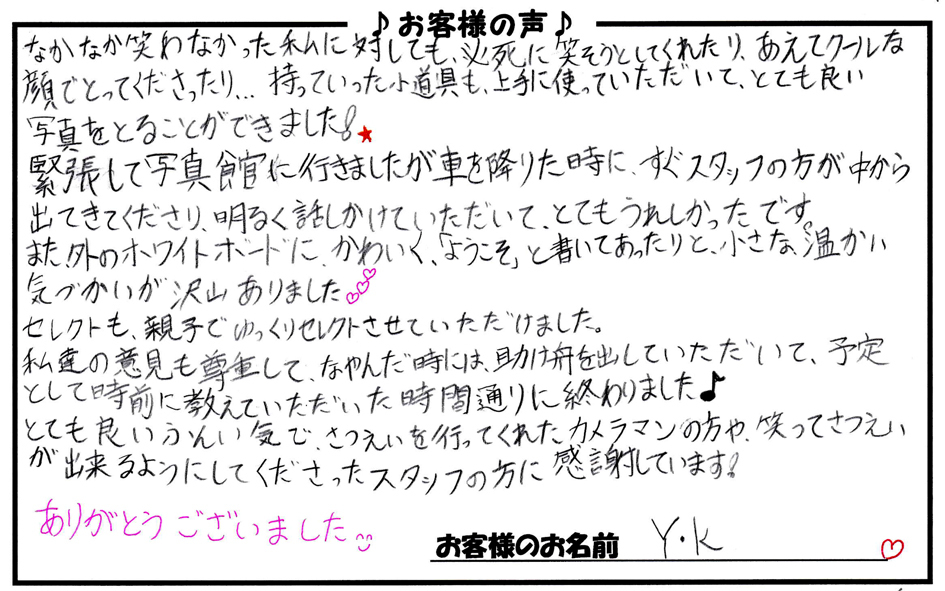 ♪お客様の声♪
なかなか笑わなかった私に対しても、必死に笑そうとしてくれたり、あえてクールな
顔でとってくださったり… 持っていった小道具も、上手に使っていただいて、とても良い
写真をとることができました!★
緊張して写真館に行きましたが車を降りた時に、すぐスタッフの方が中から
出てきてくださり、明るく話しかけていただいて、とてもうれしかったです。
また、外のホワイトボードに、かわいく、「ようこそ」と書いてあったりと、小さな、温かい
気づかいが沢山ありました♡♡♡
セレクトも、親子でゆっくりセレクトさせていただけました。
私達の意見も尊重して、なやんだ時には、助け舟を出していただいて、予定
として時前に教えていただいた時間通りに終わりました♪
とても良いふんい気で、さつえいを行ってくれたカメラマンの方や、笑ってさつえい
が出来るようにしてくださったスタッフの方に感謝しています!
ありがとうございました
お客様のお名前 Y・K ♡